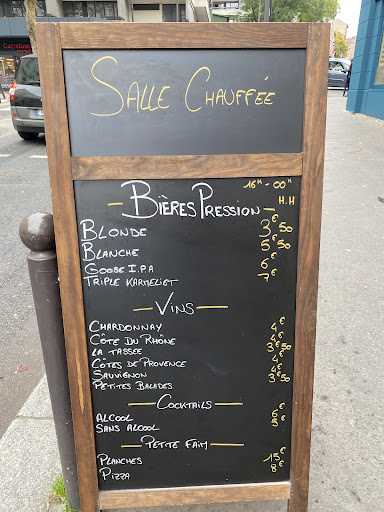 Carrefour
SALLE CHAUFFÉE
16H - 00H
BIÈRES PRESSION H.H
BLONDE 3€50
BLANCHE 5€50
GOOSE I.P.A 6€
TRIPLE KARMELIET 7€
VINS
CHARDONNAY 4€
CÔTE DU RHÔNE 4€
LA TASSEE 3€50
CÔTES DE PROVENCE 4€
SAUVIGNON 4€
PETITES BALADES 3€50
COCKTAILS
ALCOOL 6€
SANS ALCOOL 5€
PETITE FAIM
PLANCHES 15€
PIZZA 8€